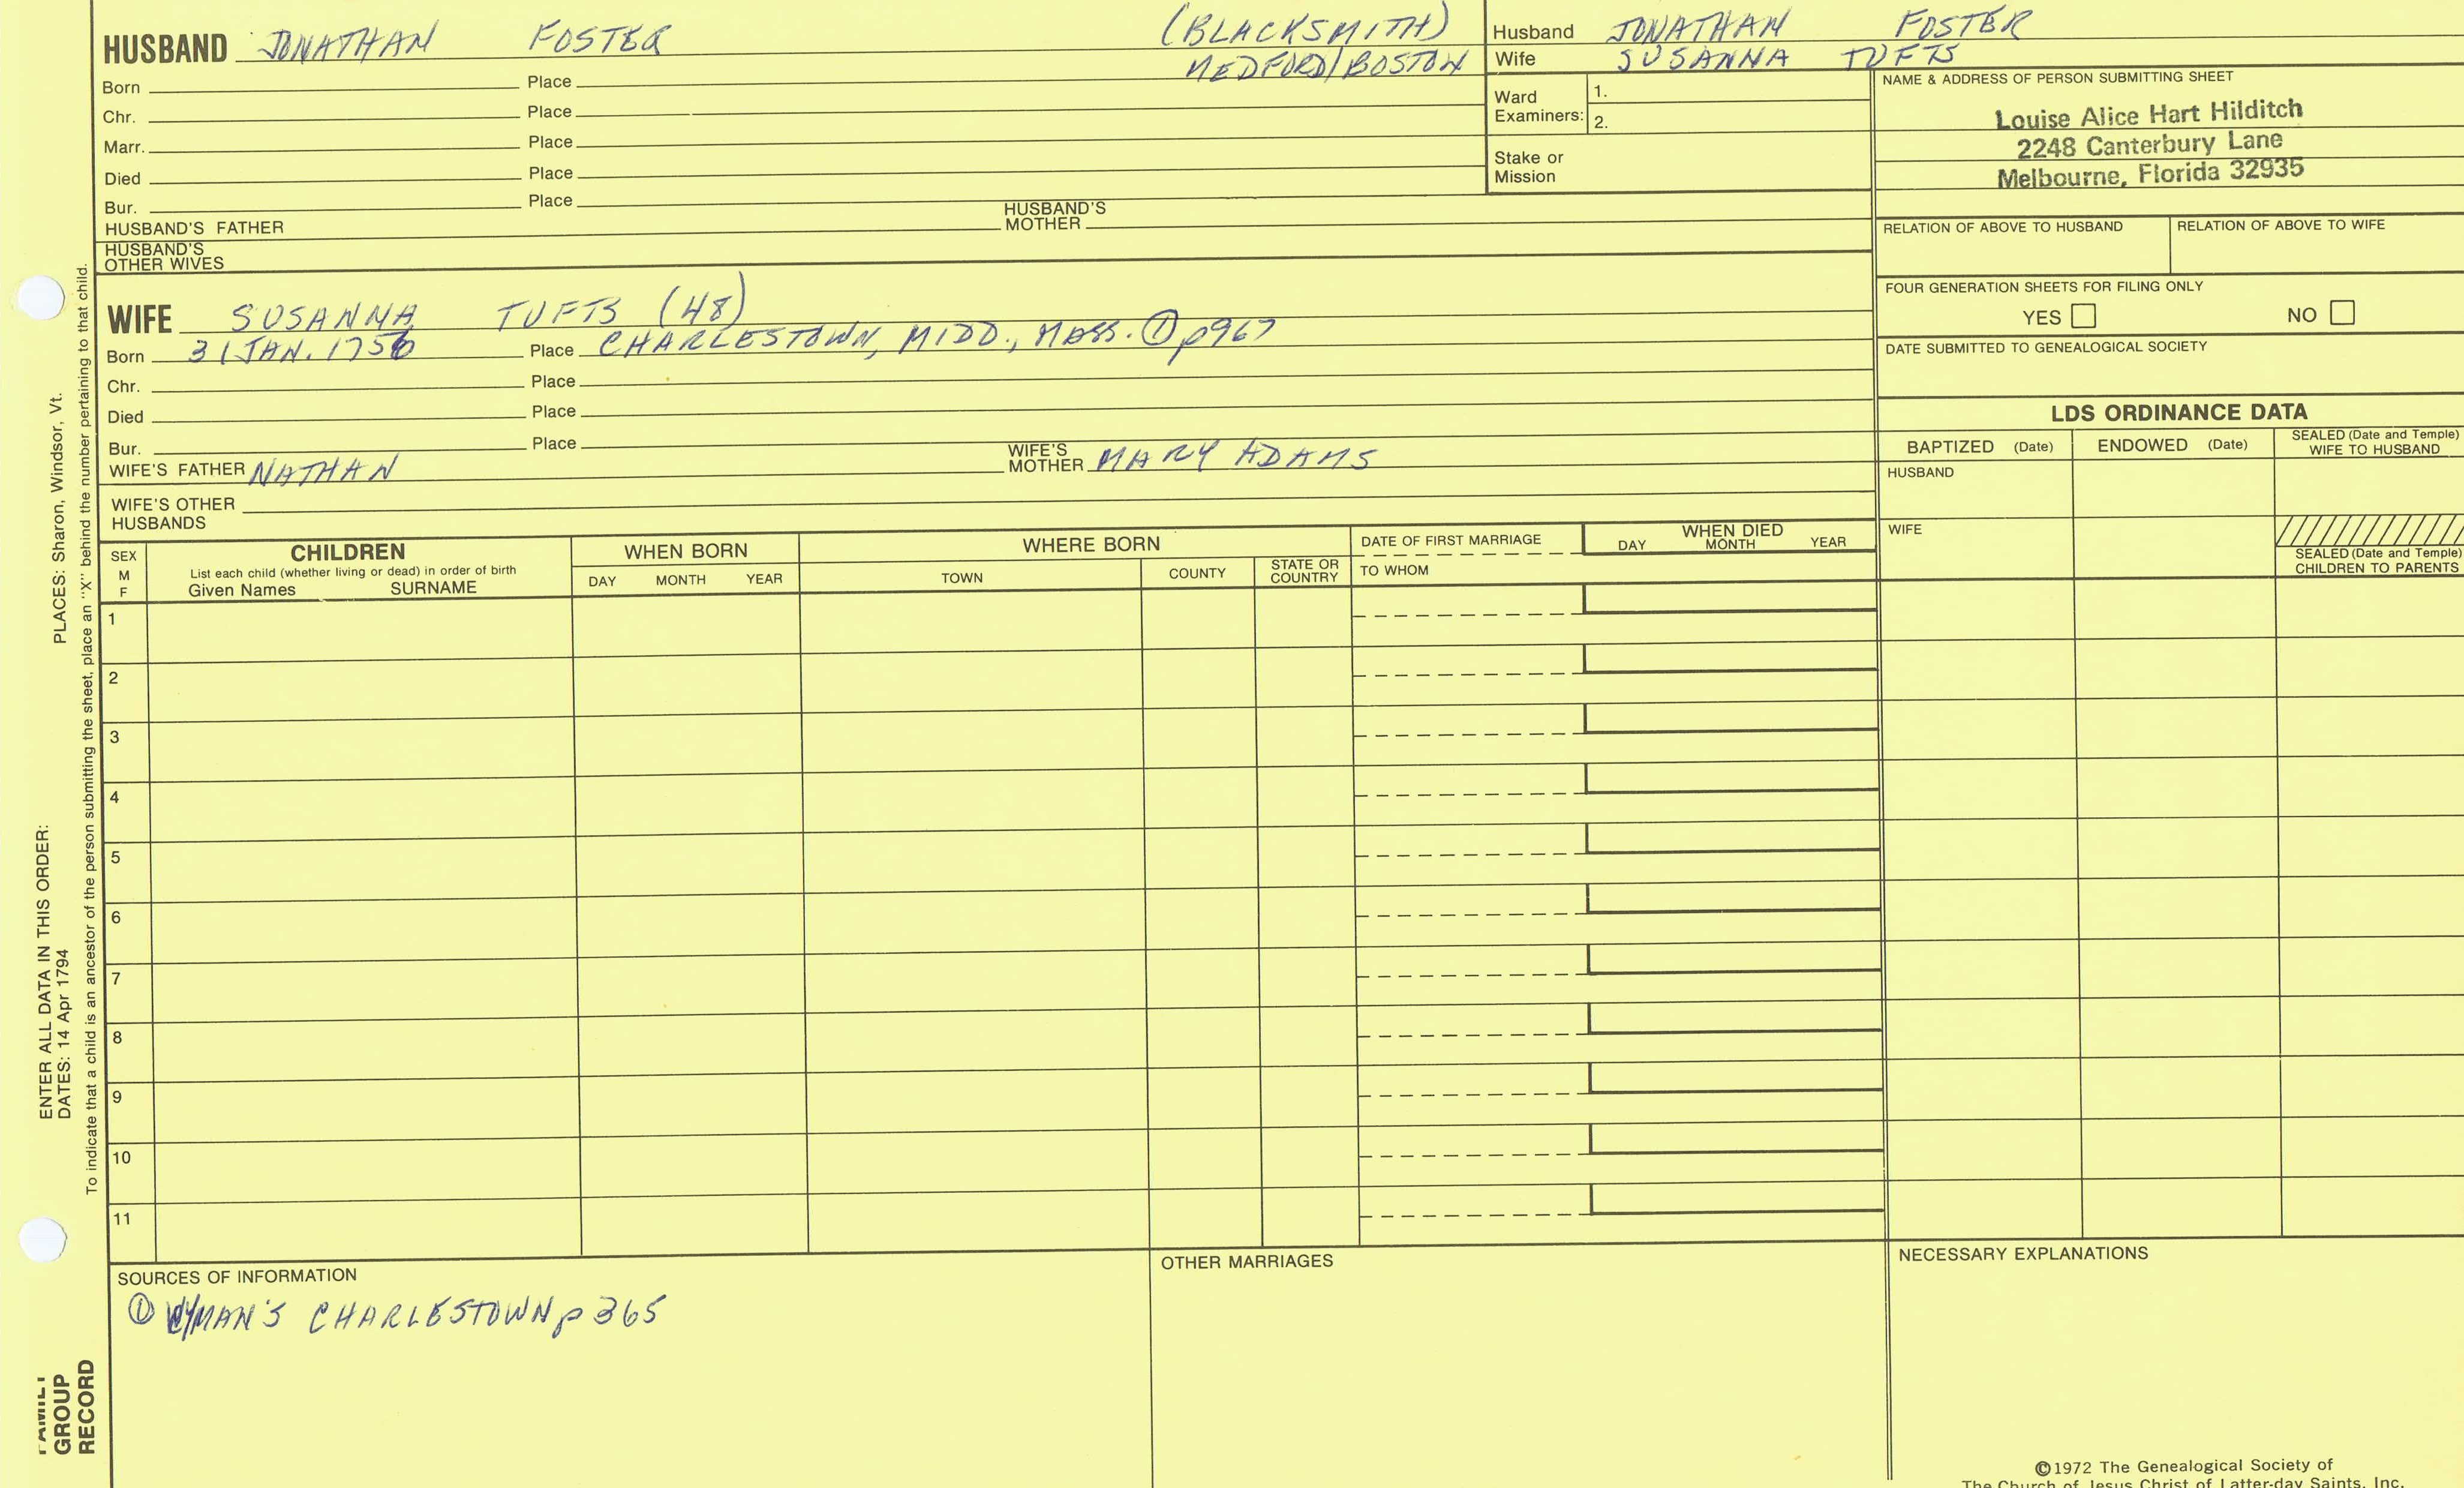 HUSBAND JONATHAN FOSTER (BLACKSMITH)
MEDFORD/BOSTON
Born Place
Chr. Place
Marr. Place
Died Place
Bur. Place
HUSBAND'S FATHER HUSBAND'S MOTHER
HUSBAND'S OTHER WIVES
Husband JONATHAN FOSTER
Wife SUSANNA TUFTS
Ward Examiners: 1.
2.
Stake or Mission
NAME & ADDRESS OF PERSON SUBMITTING SHEET
Louise Alice Hart Hilditch
2248 Canterbury Lane
Melbourne, Florida 32935
RELATION OF ABOVE TO HUSBAND RELATION OF ABOVE TO WIFE
FOUR GENERATION SHEETS FOR FILING ONLY
YES NO
DATE SUBMITTED TO GENEALOGICAL SOCIETY
WIFE SUSANNA TUFTS (48)
Born 31 JAN. 1756 Place CHARLESTOWN, MIDD., MASS. ① p967
Chr. Place
Died Place
Bur. Place
WIFE'S FATHER NATHAN WIFE'S MOTHER MARY ADAMS
WIFE'S OTHER HUSBANDS
LDS ORDINANCE DATA
BAPTIZED (Date) ENDOWED (Date) SEALED (Date and Temple) WIFE TO HUSBAND
HUSBAND
WIFE
SEALED (Date and Temple) CHILDREN TO PARENTS
SEX M F
CHILDREN
List each child (whether living or dead) in order of birth
Given Names SURNAME
WHEN BORN
DAY MONTH YEAR
WHERE BORN
TOWN COUNTY STATE OR COUNTRY
DATE OF FIRST MARRIAGE
TO WHOM
WHEN DIED
DAY MONTH YEAR
1
2
3
4
5
6
7
8
9
10
11
SOURCES OF INFORMATION
① WYMAN'S CHARLESTOWN p 365
OTHER MARRIAGES
NECESSARY EXPLANATIONS
©1972 The Genealogical Society of
The Church of Jesus Christ of Latter-day Saints, Inc.
ENTER ALL DATA IN THIS ORDER:
DATES: 14 Apr 1794 PLACES: Sharon, Windsor, Vt.
To indicate that a child is an ancestor of the person submitting the sheet, place an "X" behind the number pertaining to that child.
FAMILY
GROUP
RECORD